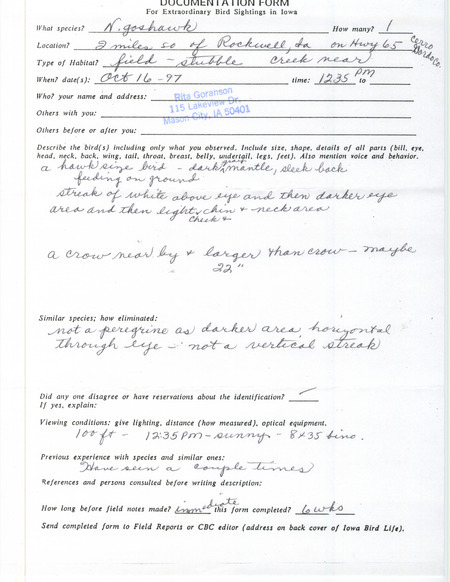 DOCUMENTATION FORM
For Extraordinary Bird Sightings in Iowa
What species? N. goshawk How many? 1
Location? 2 miles so of Rockwell, Ia on Hwy 65 Cerro Gordo Co.
Type of Habitat? field - stubble creek near
When? date(s): Oct 16-97 time: 1235 PM to
Who? your name and address: Rita Goranson
115 Lakeview Dr.
Mason City, IA 50401
Others with you:
Others before or after you:
Describe the bird(s) including only what you observed. Include size, shape, details of all parts (bill, eye,
head, neck, back, wing, tail, throat, breast, belly, undertail, legs, feet). Also mention voice and behavior.
a hawk size bird - dark gray mantle, sleek back
feeding on ground
streak of white above eye and then darker eye
area and then light cheek & chin & neck area
a crow near by & larger than crow - maybe
22"
Similar species; how eliminated:
not a peregrine as darker area horizontal
through eye - not a vertical streak
Did any one disagree or have reservations about the identification? —
If yes, explain:
Viewing conditions: give lighting, distance (how measured), optical equipment.
100 ft - 12:35 PM - sunny - 8x35 bino.
Previous experience with species and similar ones:
Have seen a couple times
References and persons consulted before writing description:
How long before field notes made? immediate this form completed? 6 wks
Send completed form to Field Reports or CBC editor (address on back cover of Iowa Bird Life).